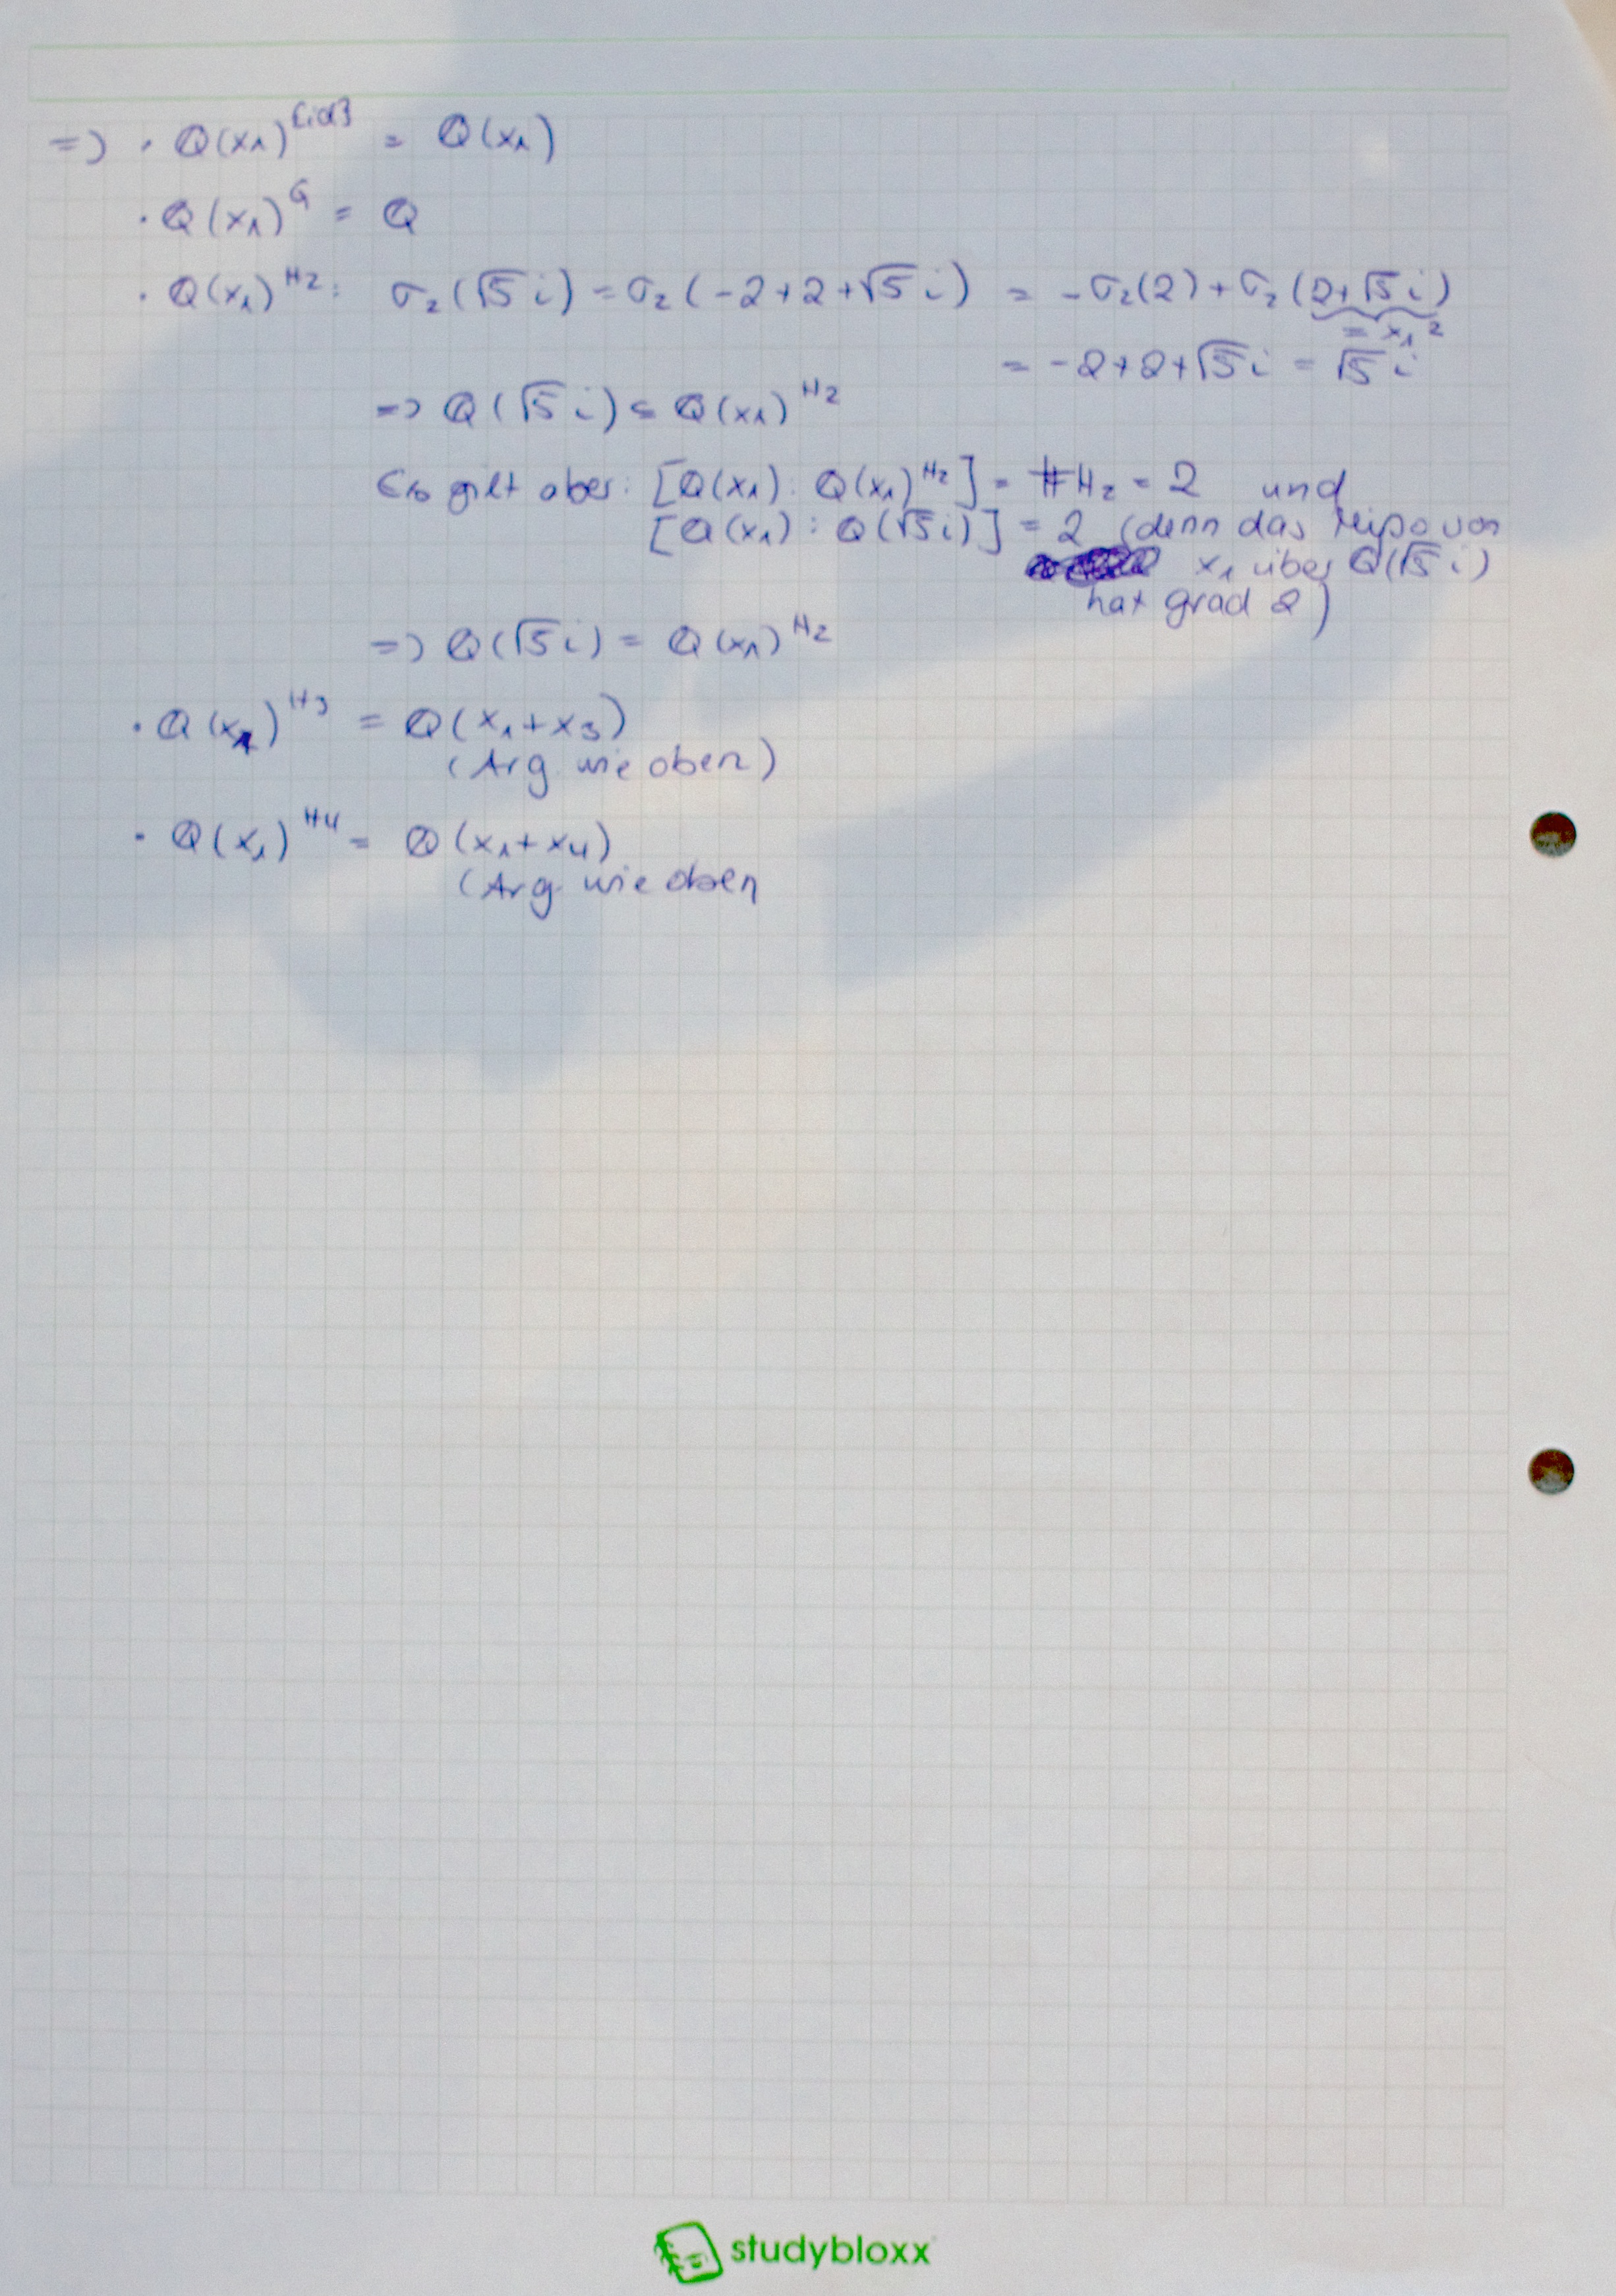 => · Q(x₁)^{id} = Q(x₁)
· Q(x₁)^G = Q
· Q(x₁)^H₂: σ₂(√5 i) = σ₂(-2+2+√5 i) = -σ₂(2) + σ₂(2+√5 i)
= x₁²
= -2+2+√5 i = √5 i
=> Q(√5 i) ⊆ Q(x₁)^H₂
Es gilt aber: [Q(x₁) : Q(x₁)^H₂] = #H₂ = 2 und
[Q(x₁) : Q(√5 i)] = 2 (denn das Mipo von
x₁ über Q(√5 i)
hat grad 2)
=> Q(√5 i) = Q(x₁)^H₂
· Q(x₁)^H₃ = Q(x₁+x₃)
(Arg wie oben)
· Q(x₁)^H₄ = Q(x₁+x₄)
(Arg. wie oben
studybloxx